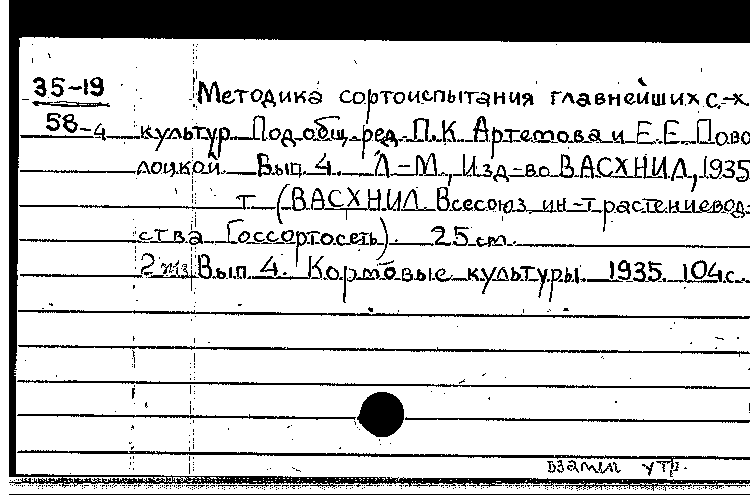 35-19
58-4
Методика сортоиспытания главнейших с.-х.
культур. Под общ. ред. П.К. Артемова и Е.Е. Пово
лоцкой. Вып. 4. Л.-М., Изд-во ВАСХНИЛ, 1935
т. (ВАСХНИЛ. Всесоюз. ин-т растениевод-
ства Госсортосеть). 25 cm.
2 экз Вып. 4. Кормовые культуры. 1935. 104 с.
взамен утр.